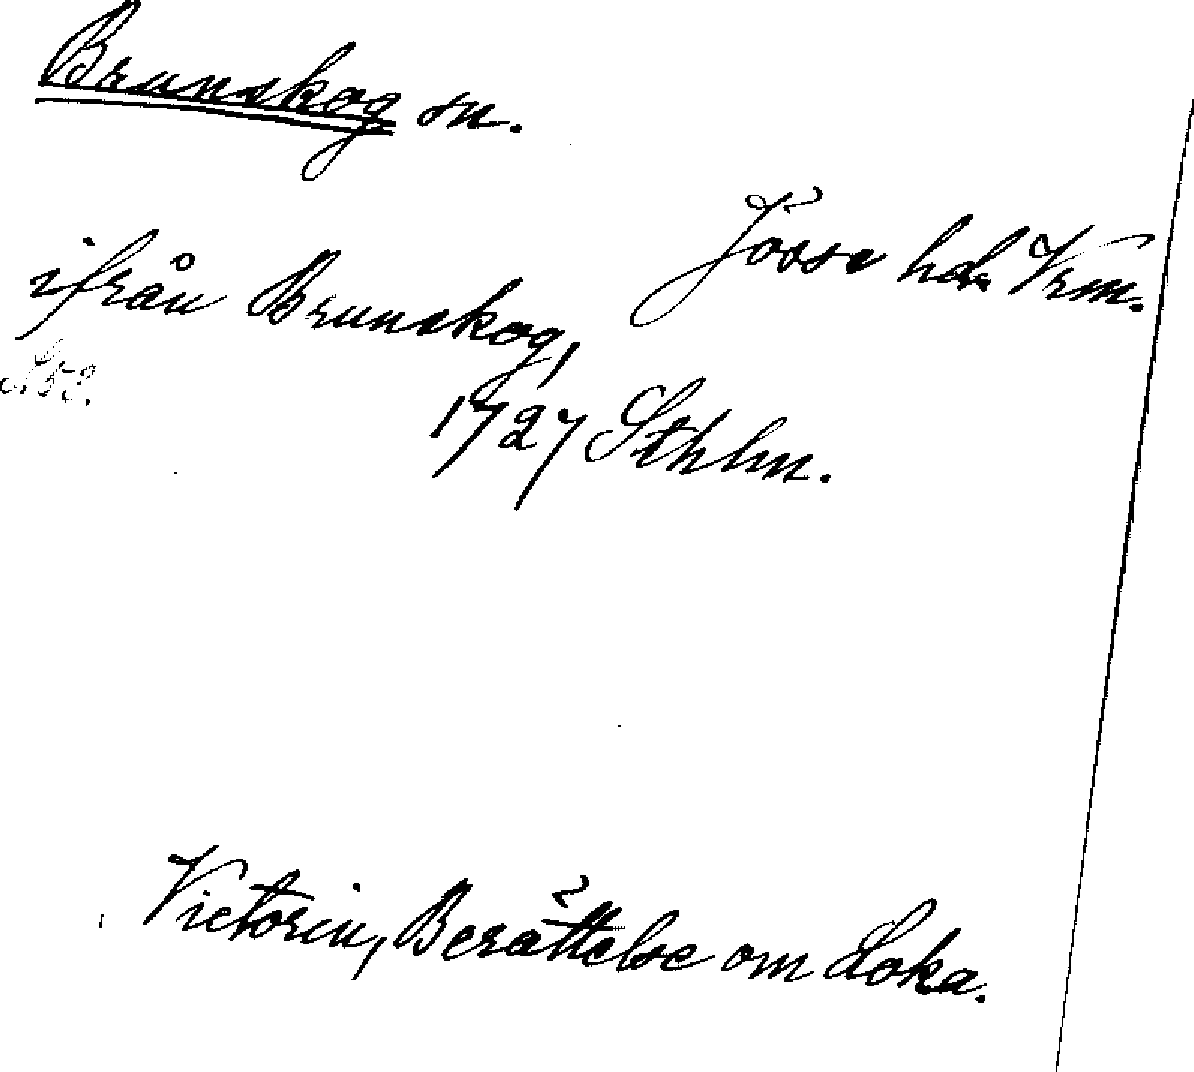 Brunskog sn.
Jösse hd. Vrm.
ifrån Brunskog,
1727 Sthlm.
Victorin, Berättelse om Loka.